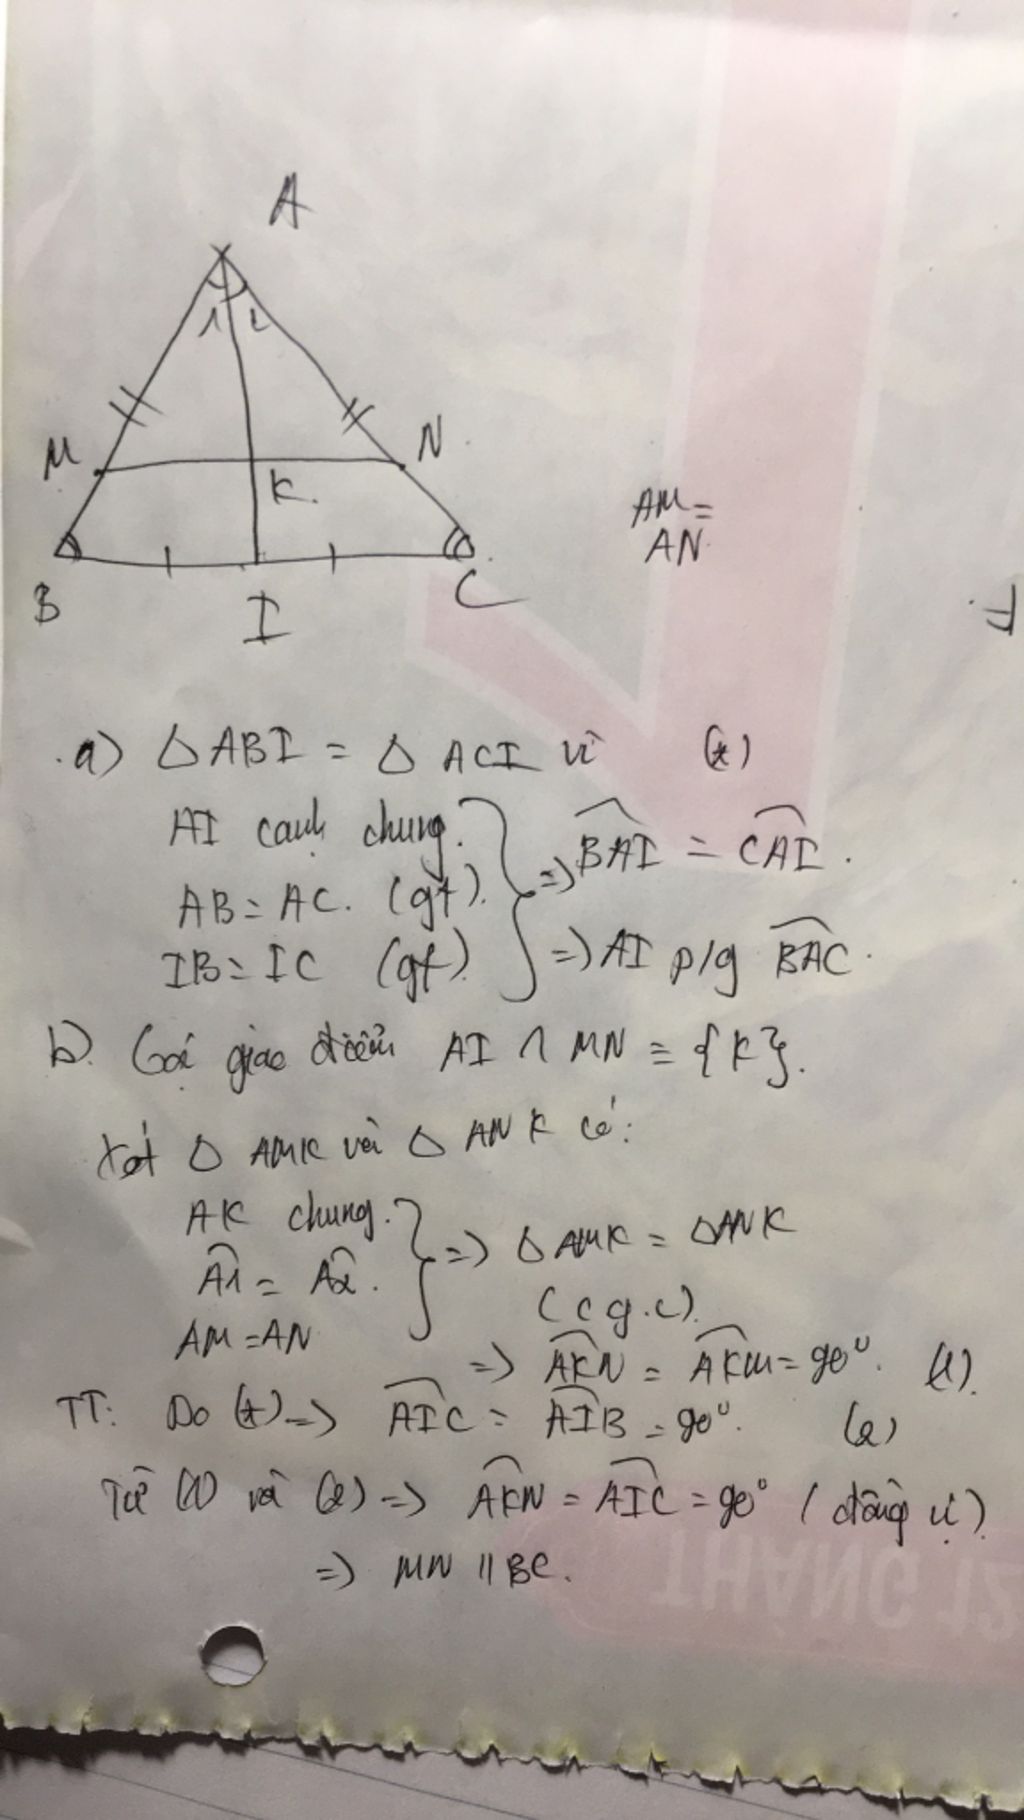 A
1 2
M N
K.
AM =
AN.
B I C
a) Δ ABI = Δ ACI vì (*)
AI cạnh chung. => BAI = CAI.
AB = AC. (gt).
IB = IC (gt). => AI p/g BAC.
b. Gọi giao điểm AI ∩ MN ≡ {K}.
Xét Δ AMK và Δ ANK có:
AK chung.
A1 = A2. => Δ AMK = Δ ANK
AM = AN (c.g.c).
=> AKN = AKM = 90°. (1).
TT: Do (*) => AIC = AIB = 90°. (2)
Từ (1) và (2) => AKN = AIC = 90° (đồng vị)
=> MN // BC.
THÁNG 12